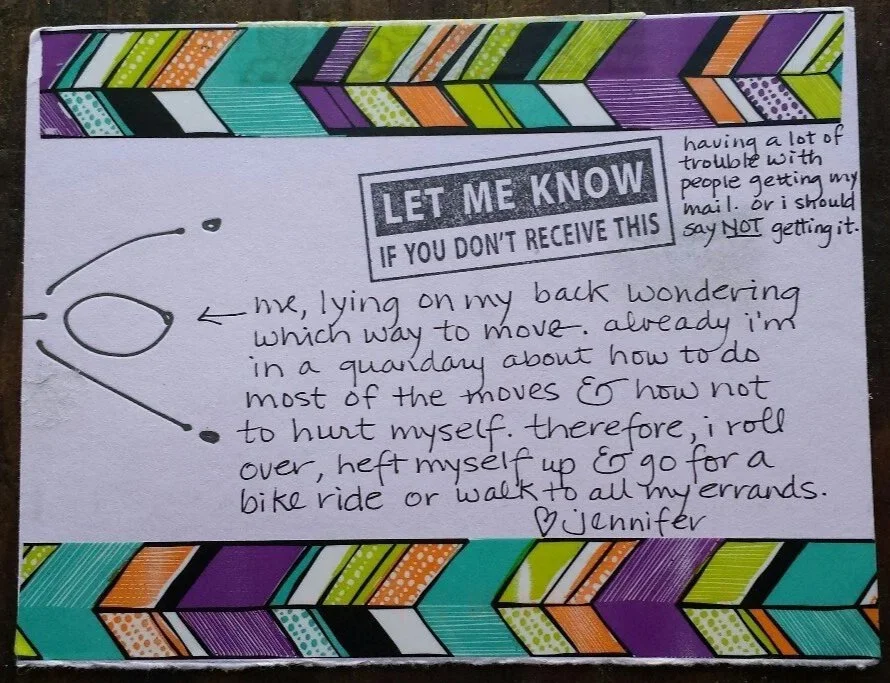 LET ME KNOW
IF YOU DON'T RECEIVE THIS
having a lot of
trouble with
people getting my
mail. or i should
say NOT getting it.
← me, lying on my back wondering
which way to move. already i'm
in a quandary about how to do
most of the moves & how not
to hurt myself. therefore, i roll
over, heft myself up & go for a
bike ride or walk to all my errands.
♡ jennifer